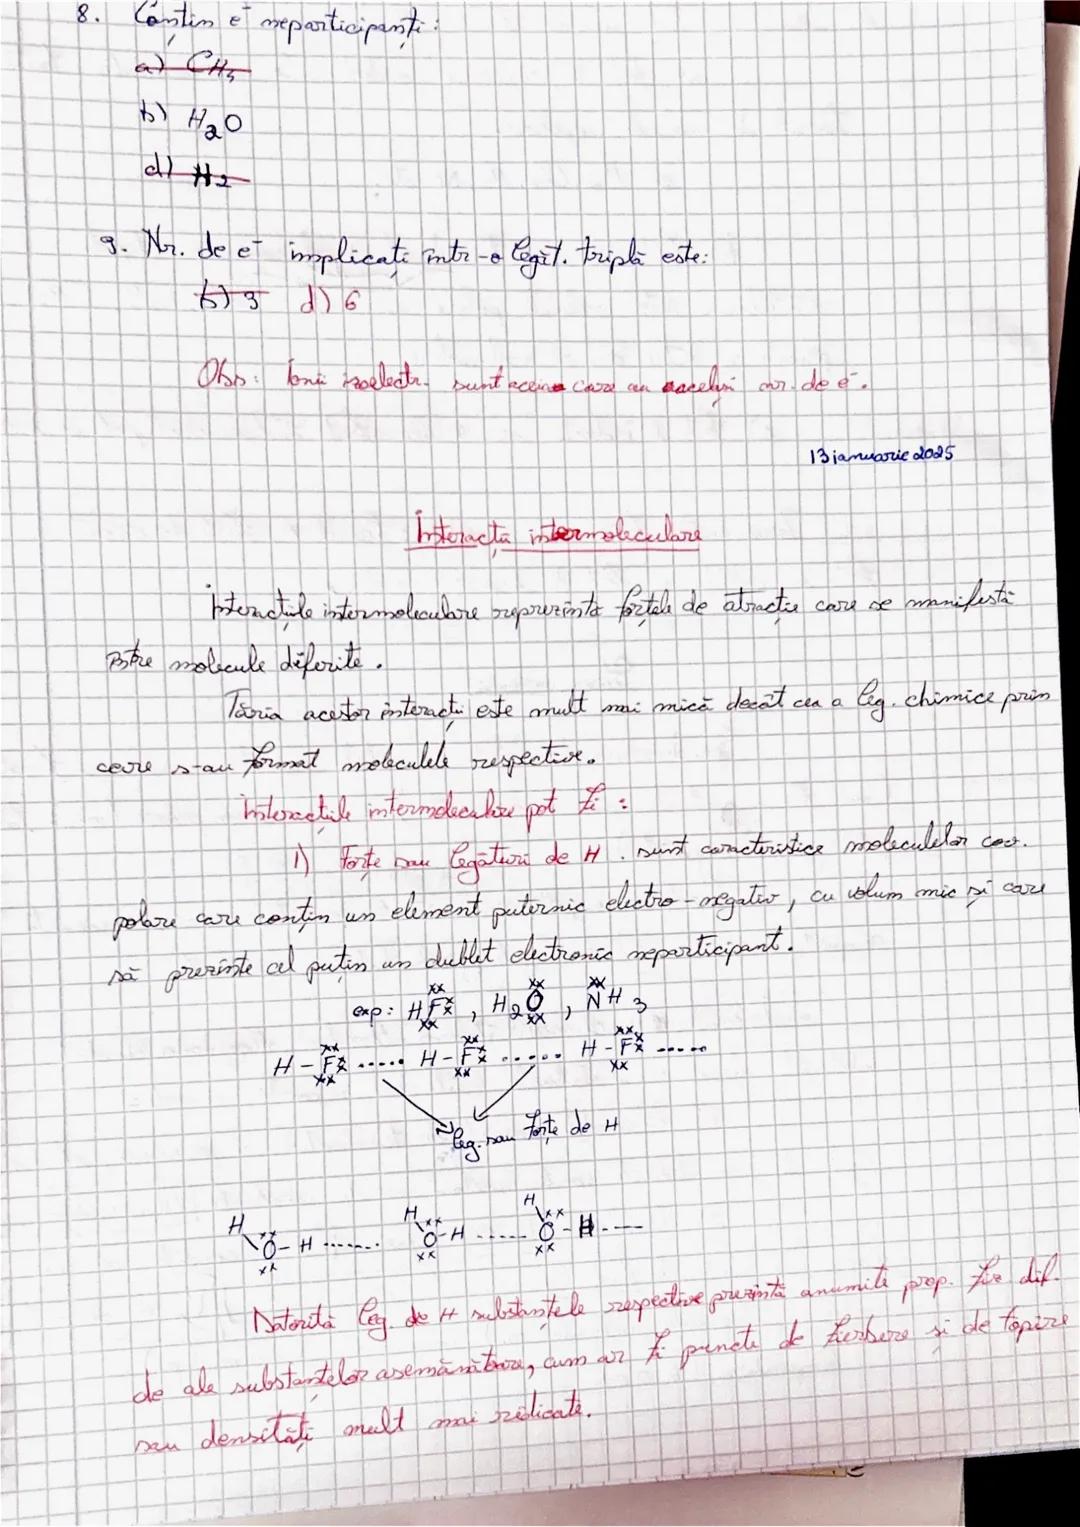 8. Contin e⁻ neparticipanți:
a) CH₄
b) H₂O
d) H₂
9. Nr. de e⁻ implicați într-o legăt. triplă este:
b) 3 d) 6
Obs: Ionii izoelectr. sunt aceia care au același nr. de e⁻.
13 ianuarie 2025
Interacții intermoleculare
Interacțiile intermoleculare reprezintă forțele de atracție care se manifestă
între molecule diferite.
Tăria acestor interacții este mult mai mică decât cea a leg. chimice prin
care s-au format moleculele respective.
Interacțiile intermoleculare pot fi:
1) Forțe sau legături de H. sunt caracteristice moleculelor cov.
polare care conțin un element puternic electro-negativ, cu volum mic și care
să prezinte cel puțin un dublet electronic neparticipant.
exp: HF, H₂O, NH₃
H - F ..... H - F ..... H - F .....
leg. sau Forțe de H
H H H
O - H ....... O - H ...... O - H ----
Datorită leg. de H substanțele respective prezintă anumite prop. fiz dif.
de ale substanțelor asemănătoare, cum ar fi puncte de fierbere și de topire
sau densități mult mai ridicate.